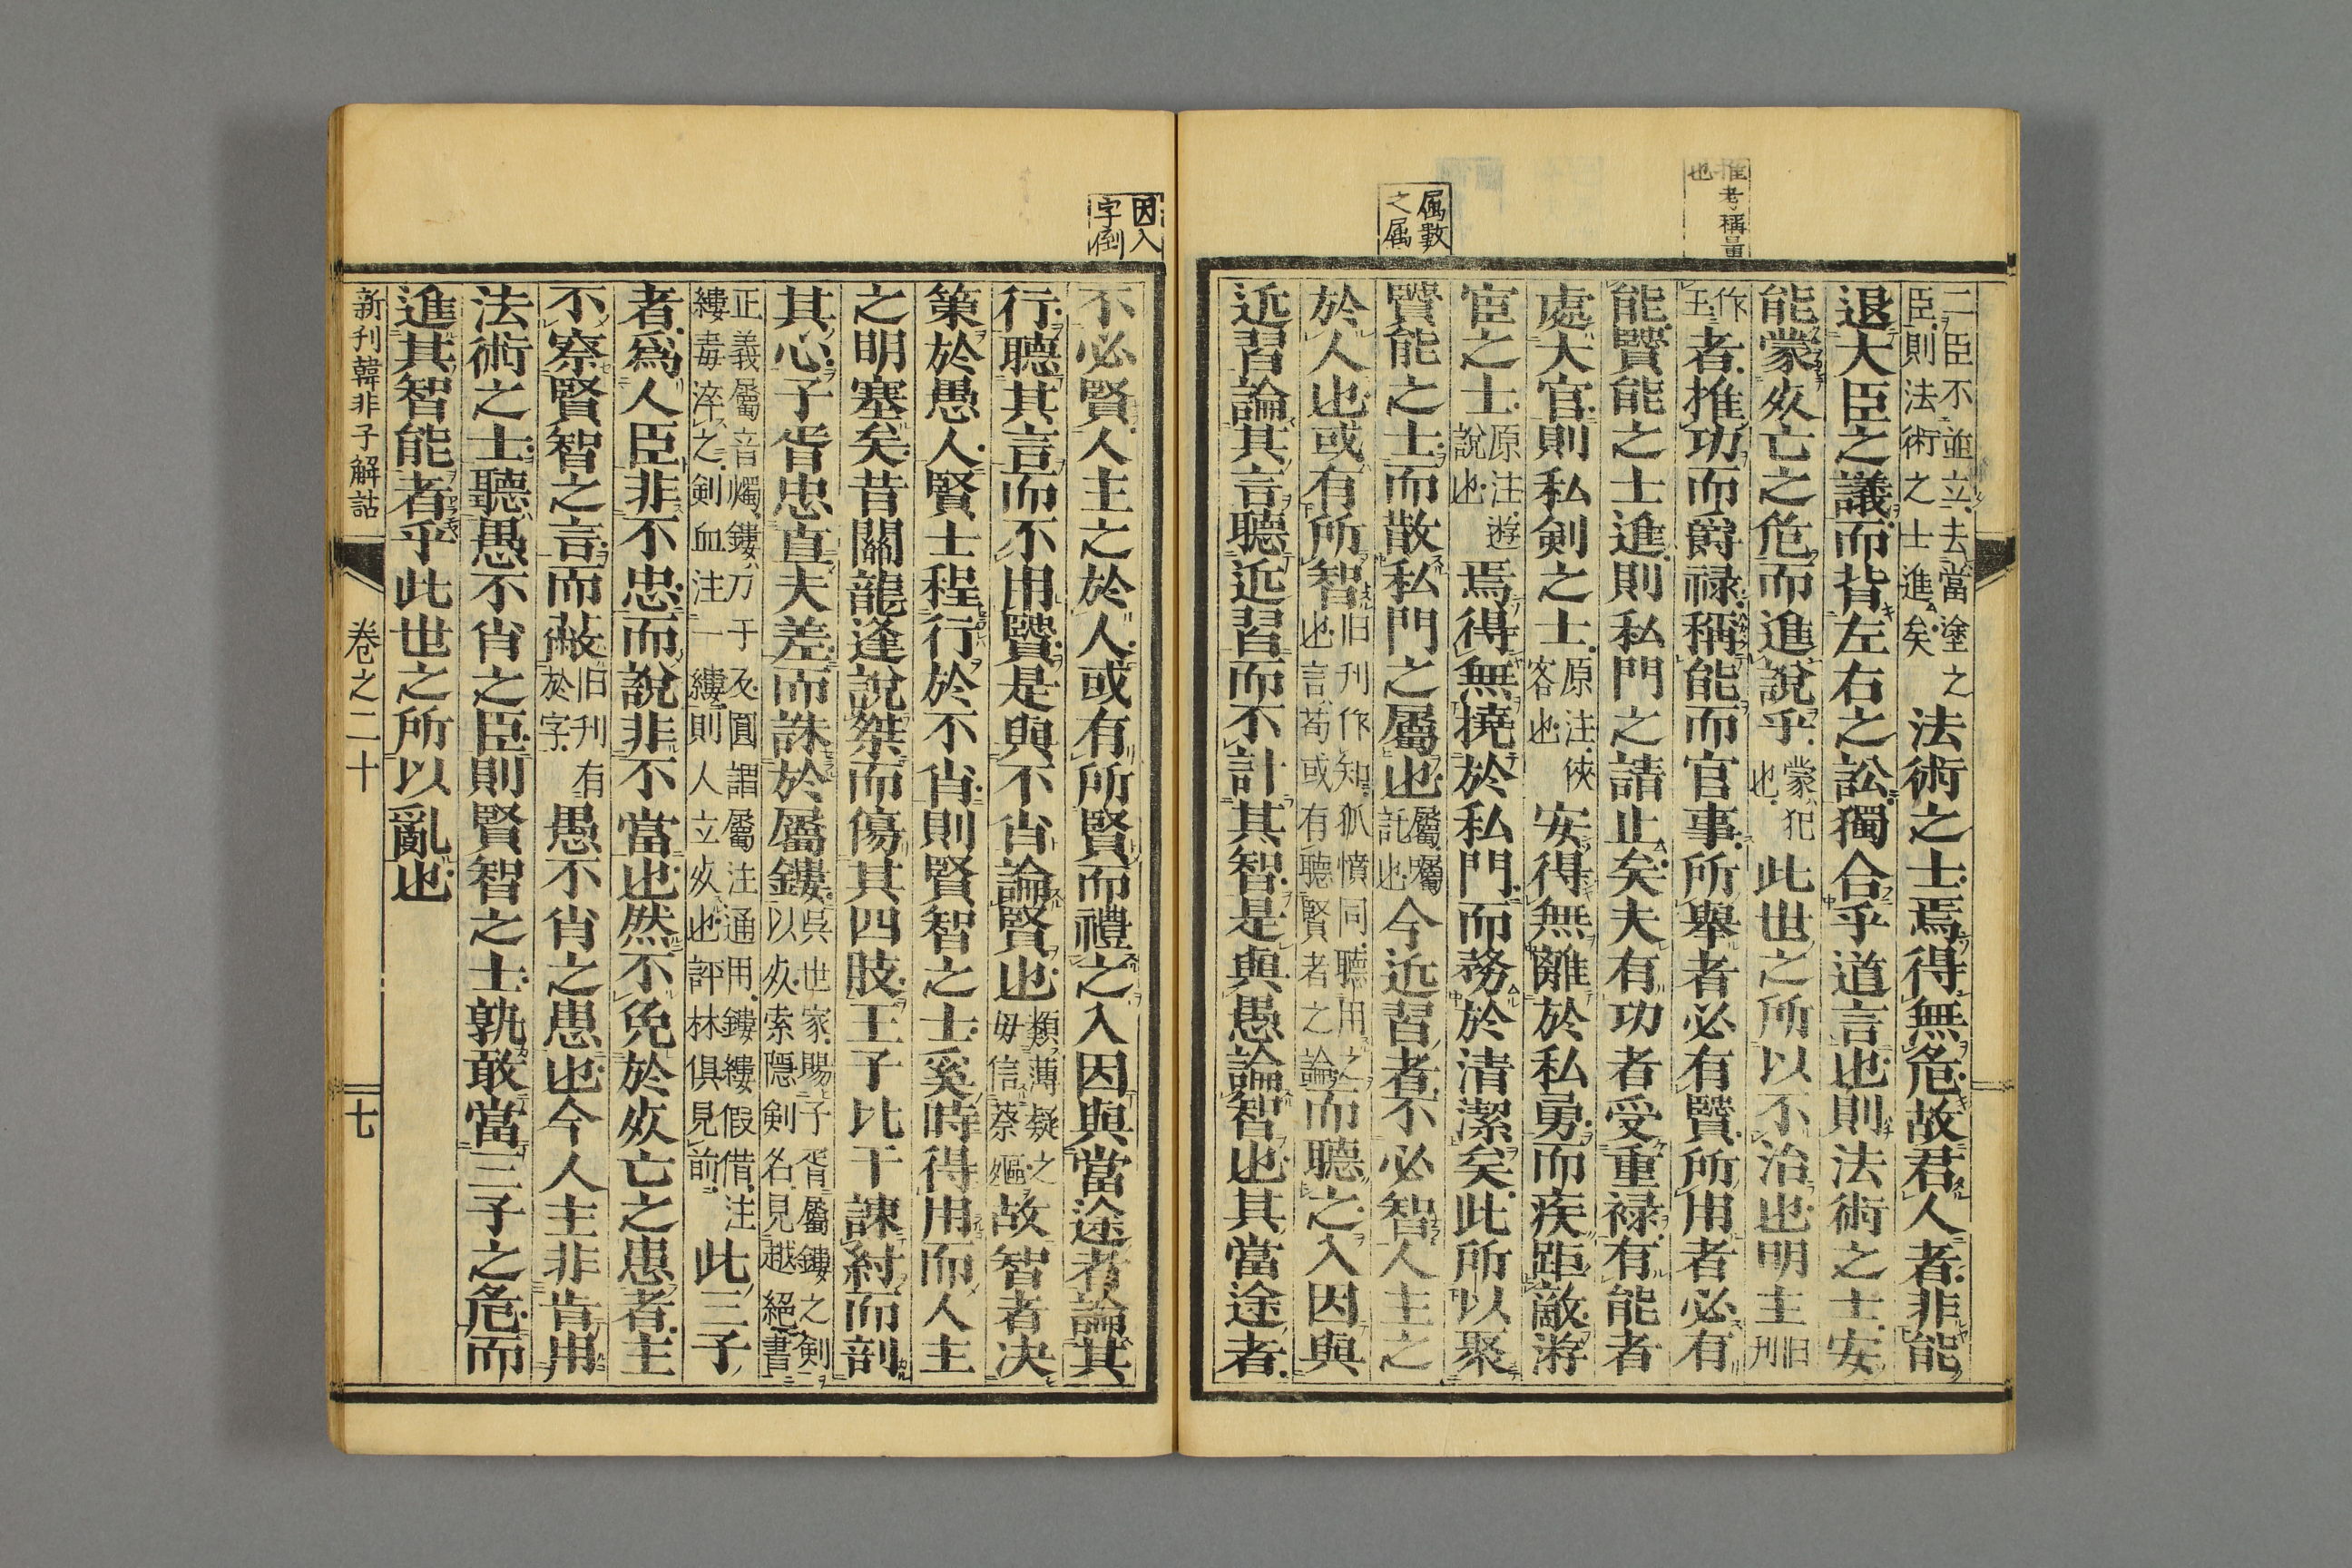 推考稱量
也
属數
之属
二臣不並立去當塗之
臣則法術之士進矣
法術之士焉得無危故君人者非能
退大臣之議而背左右之訟獨合乎道言也則法術之士安
能蒙㱙亡之危而進說乎
蒙犯
也
此世之所以不治也明主
旧
刊
作
玉
者推功而爵禄稱能而官事所舉者必有賢所用者必有
能賢能之士進則私門之請止矣夫有功者受重禄有能者
處大官則私剣之士
原注俠
客也
安得無離於私勇而疾距敵游
宦之士
原注遊
說也
焉得無撓於私門而務於清潔矣此所以聚
賢能之士而散私門之屬也
屬囑
託也
今近習者不必智人主之
於人也或有所智
旧刊作知狐憤同聽用之
也言苟或有聽賢者之論
而聽之入因與
近習論其言聽近習而不計其智是與愚論智也其當途者
因入
字倒
不必賢人主之於人或有所賢而禮之入因與當途者論其
行聽其言而不用賢是與不肖論賢也
類薄疑之
毋信蔡嫗
故智者决
策於愚人賢士程行於不肖則賢智之士奚時得用而人主
之明塞矣昔關龍逢說桀而傷其四肢王子比干諫紂而剖
其心子胥忠直夫差而誅於屬鏤
吳世家賜子胥屬鏤之剣
以㱙索隱剣名見越絕書
正義屬音燭鏤力于反圓謂屬注通用鏤縷假借注
縷毒淬之剣血注一縷則人立㱙也評林俱見前
此三子
者爲人臣非不忠而說非不當也然不免於㱙亡之患者主
不察賢智之言而蔽
旧刊有
於字
愚不肖之患也今人主非肯用
法術之士聽愚不肖之臣則賢智之士孰敢當三子之危而
進其智能者乎此世之所以亂也
新刊韓非子解詁
卷之二十
七